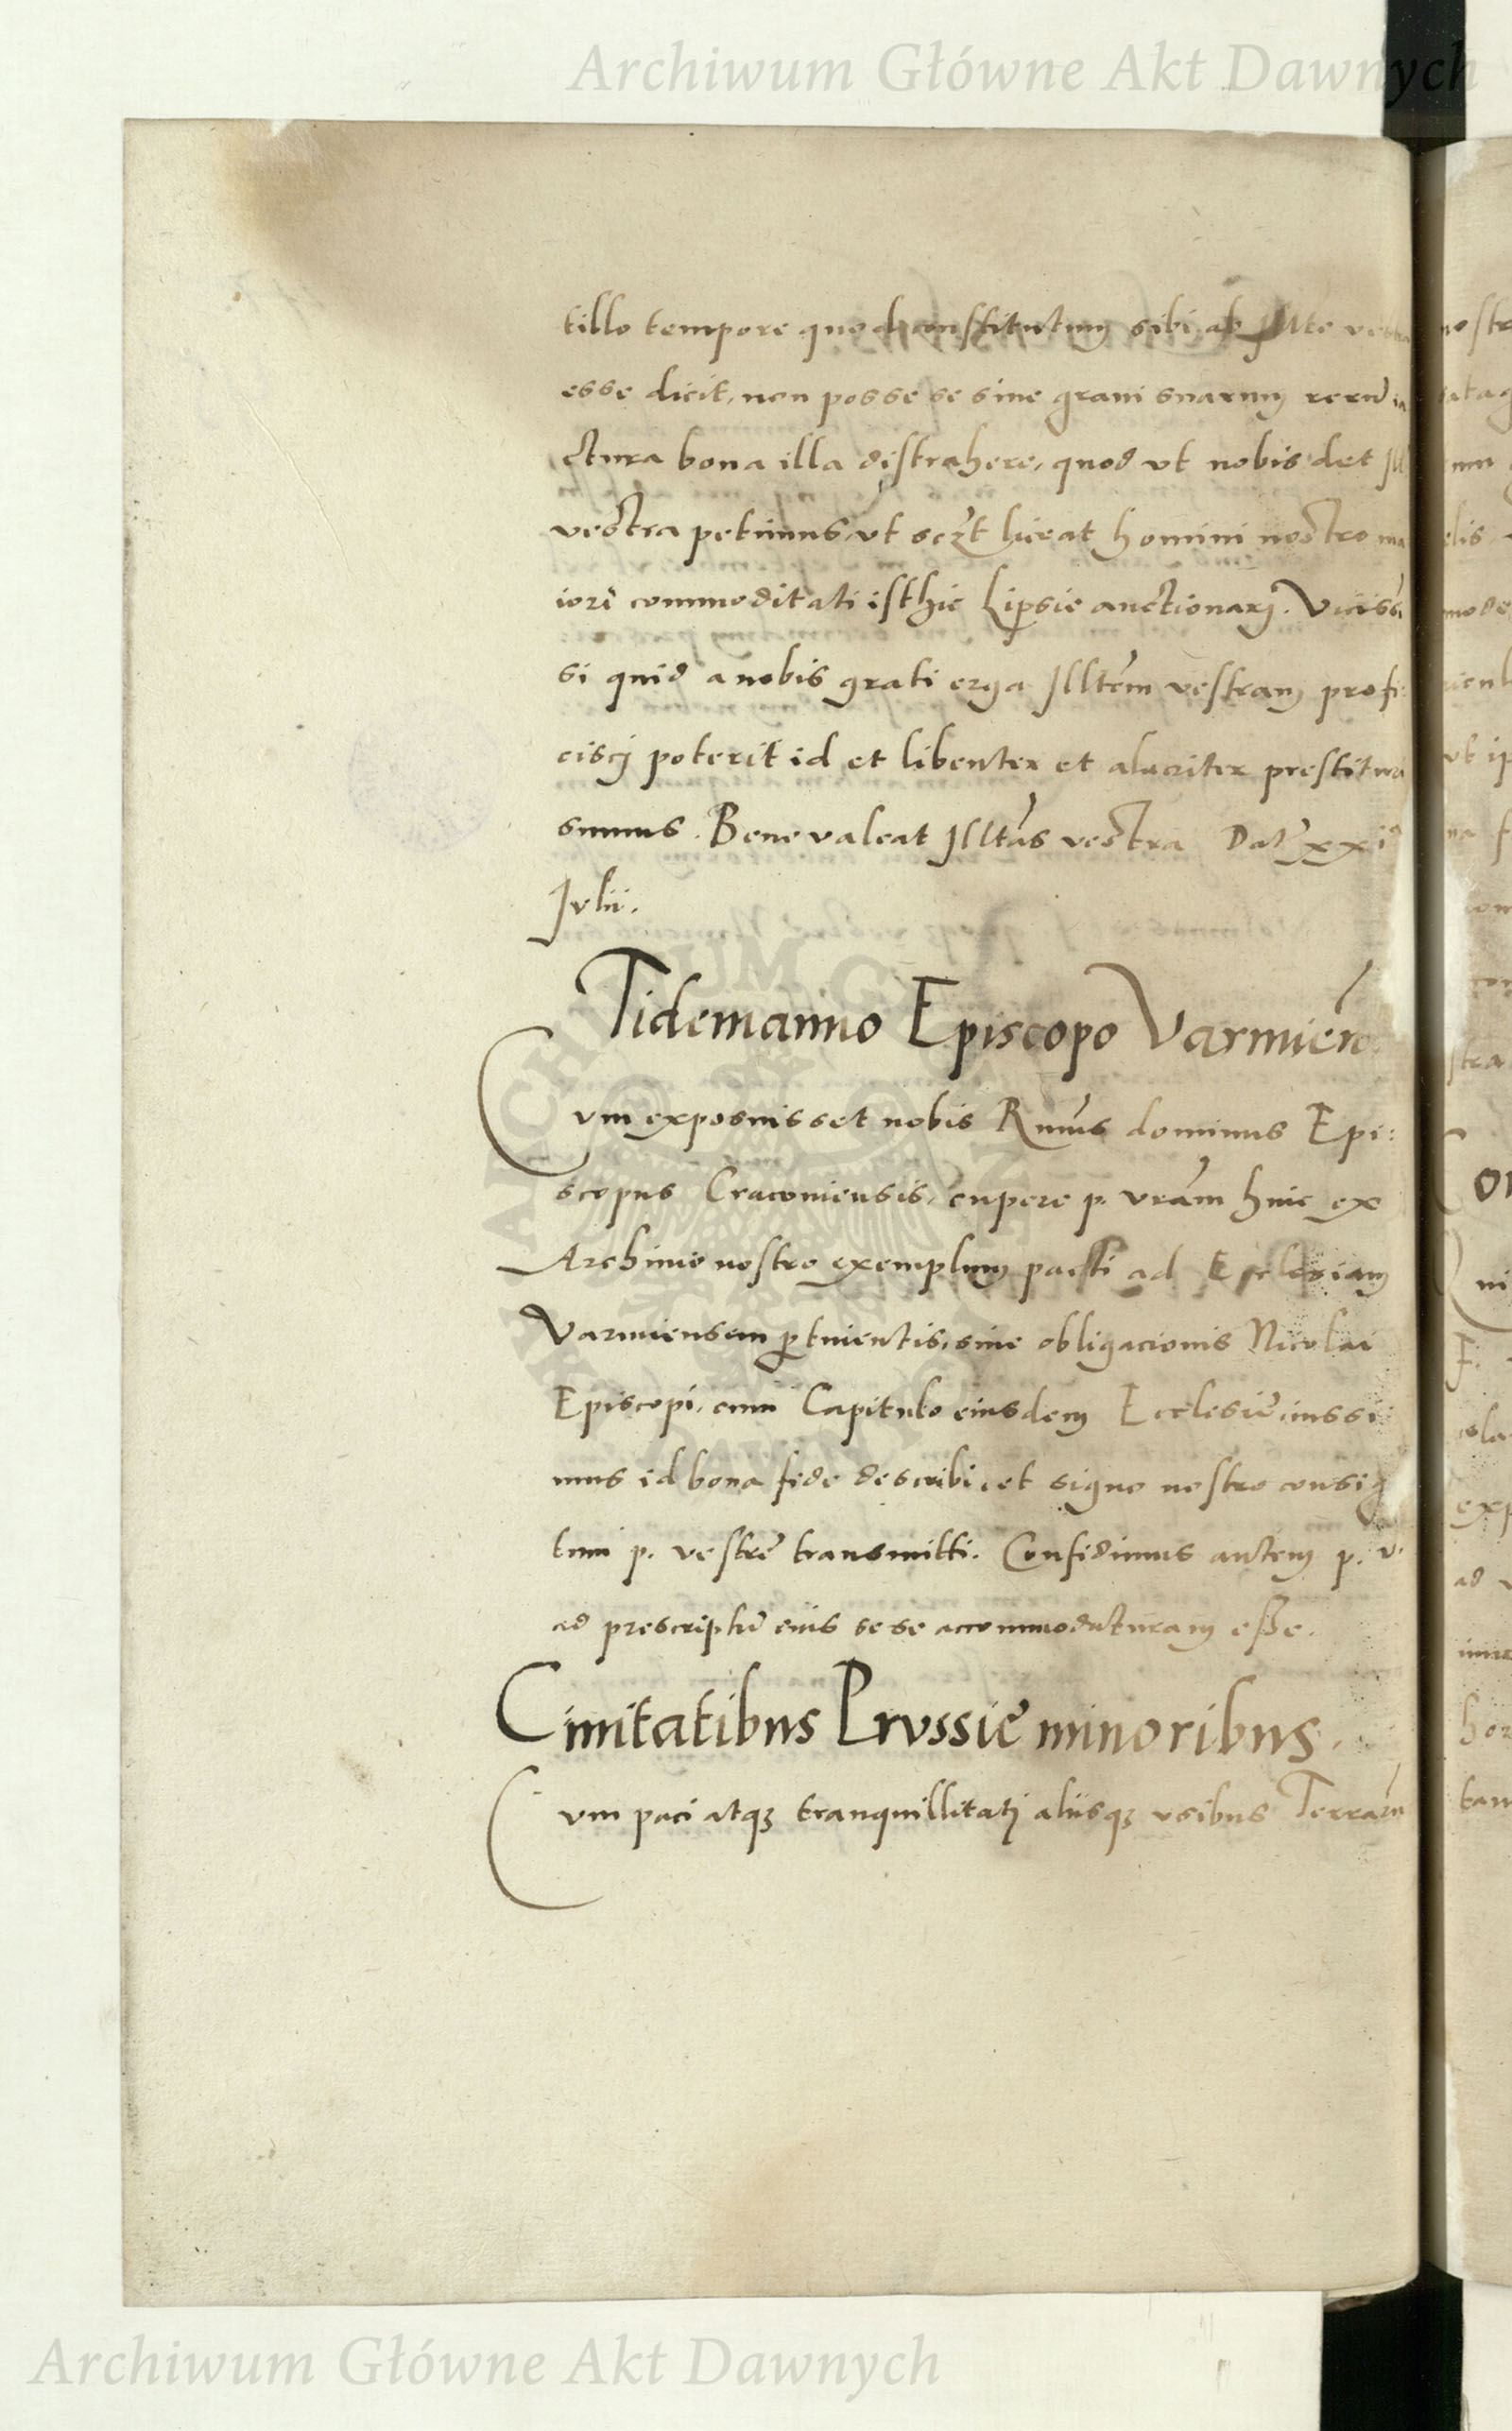 Archiwum Główne Akt Dawnych
tillo tempore quod constitutum sibi ab Illte
esse dicit, non posse se sine graui suarum rerū ia
ctura bona illa distrahere, quod vt nobis det Ill
vestra petimus, vt sczt liceat homini nostro ma
iori commoditati isthic Lipsie auctionarj. Vicissī
si quid a nobis grati erga Illtem vestram profi:
ciscj poterit id et libenter et alacriter prestitura
sumus. Bene valeat Illtas vestra Dat xxi
Julii.
Tidemanno Episcopo Varmien
Cum exposuisset nobis Rmus dominus Epi:
scopus Cracouiensis, cupere p. vram huic ex
Archiuio nostro exemplum pacti ad Ecclesiam
Varmiensem ptinentis, siue obligacionis Nicolai
Episcopi, cum Capitulo eiusdem Ecclesie, iussi
mus id bona fide describi, et signo nostro consig
tum p. vestre transmitti. Confidimus autem p. v.
ad prescriptū eius sese accommodaturam esse.
Ciuitatibus Prussie minoribus.
Cum paci atqz tranquillitatj aliisqz vsibus Terrarū
Archiwum Główne Akt Dawnych